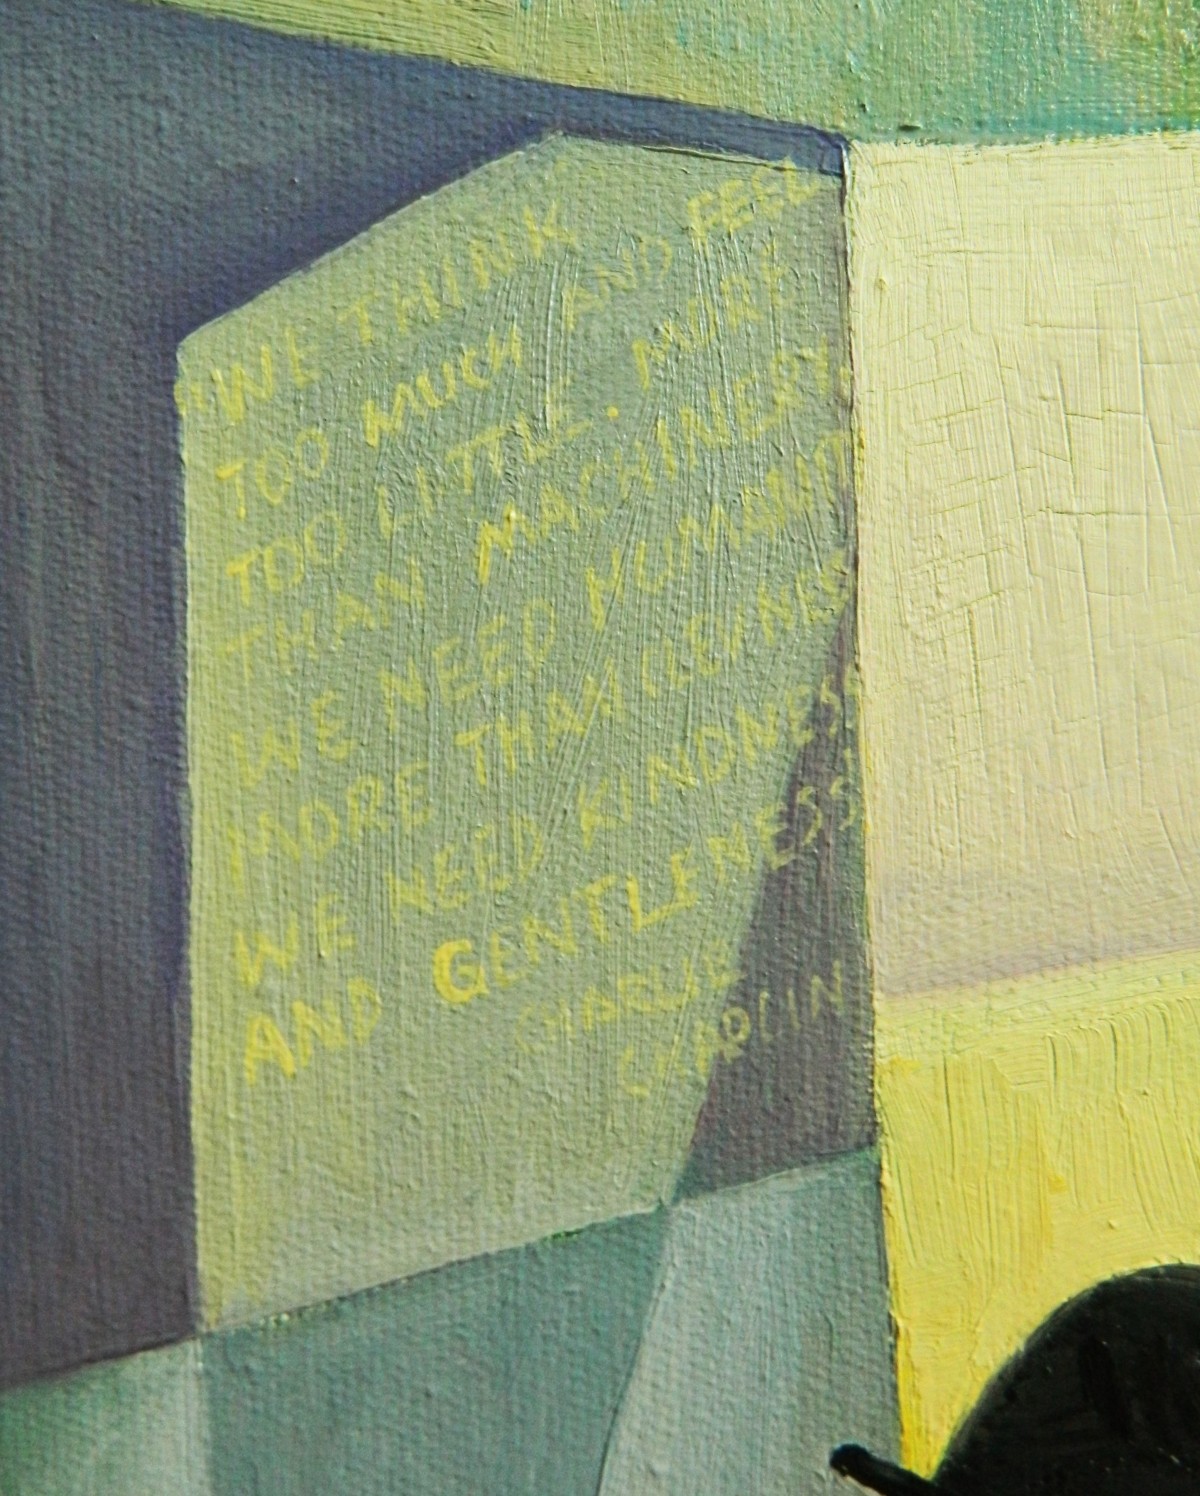 "WE THINK
TOO MUCH AND FEEL
TOO LITTLE. MORE
THAN MACHINERY.
WE NEED HUMANIT
MORE THAN CLEVERNESS
WE NEED KINDNESS
AND GENTLENESS"
CHARLIE
CHAPLIN